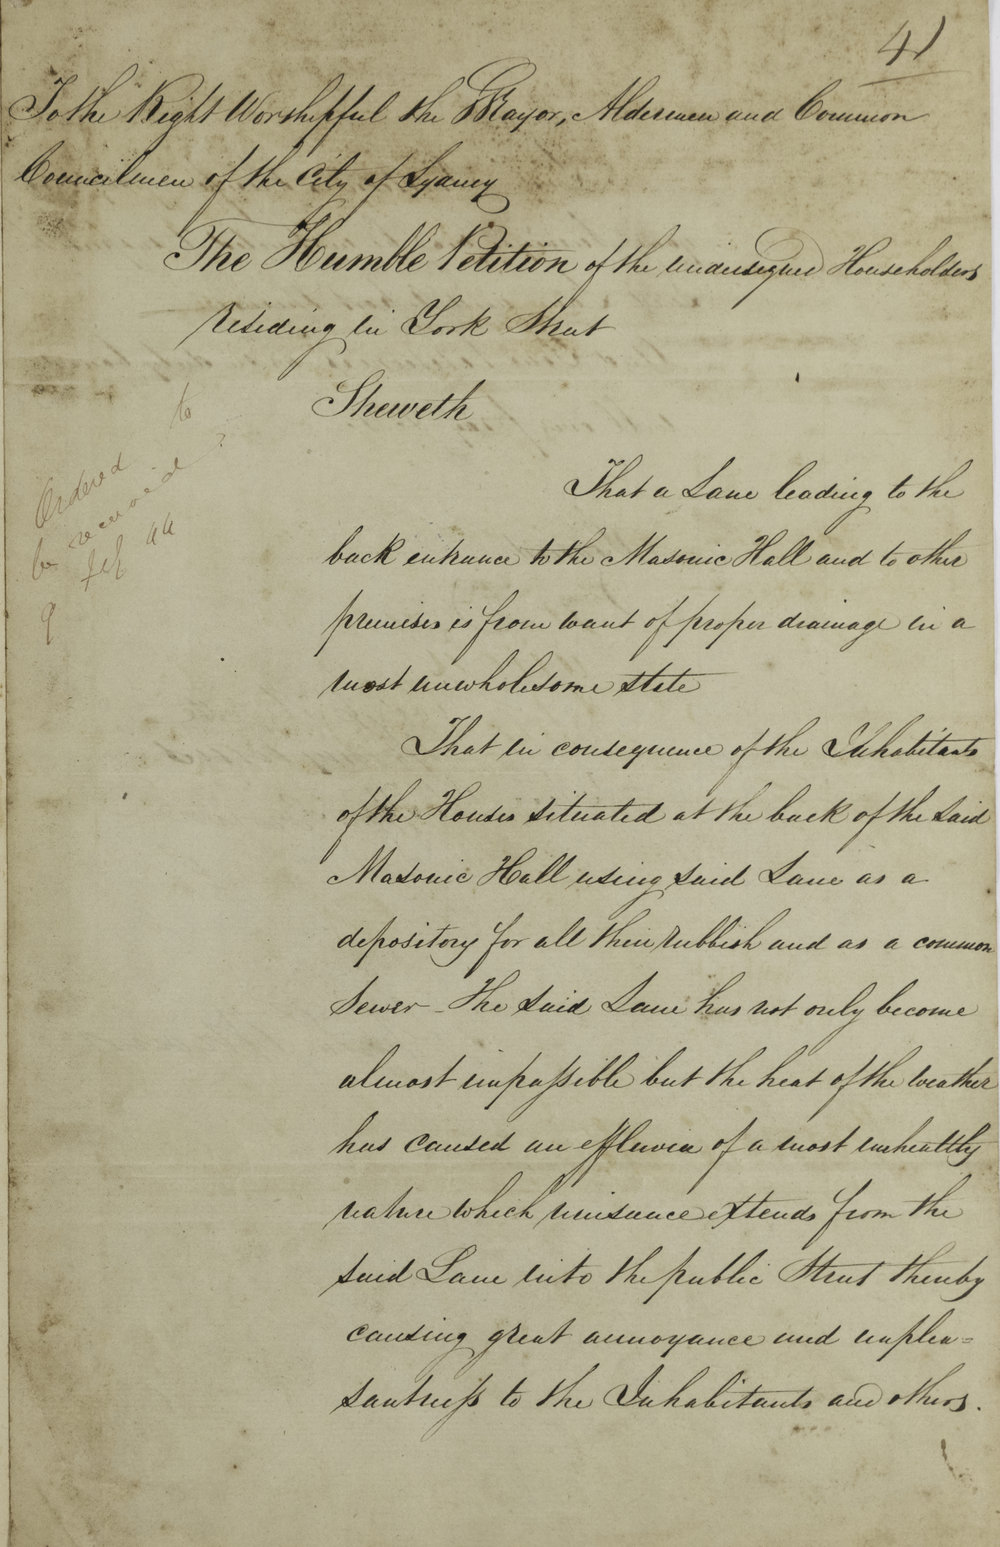 41
To the Right Worshipful the Mayor, Aldermen and Common
Councilmen of the City of Sydney
The Humble Petition of the undersigned Householders
residing in York Street
Sheweth
Ordered to
be received
9 Feb 44
That a Lane leading to the
back entrance to the Masonic Hall and to other
premises is from want of proper drainage in a
most unwholesome state
That in consequence of the Inhabitants
of the Houses situated at the back of the said
Masonic Hall using said Lane as a
depository for all their rubbish and as a common
Sewer - The said Lane has not only become
almost impassible but the heat of the weather
has caused an effluvia of a most unhealthy
nature which nuisance extends from the
said Lane into the public Street thereby
causing great annoyance and unplea=
santness to the Inhabitants and others.